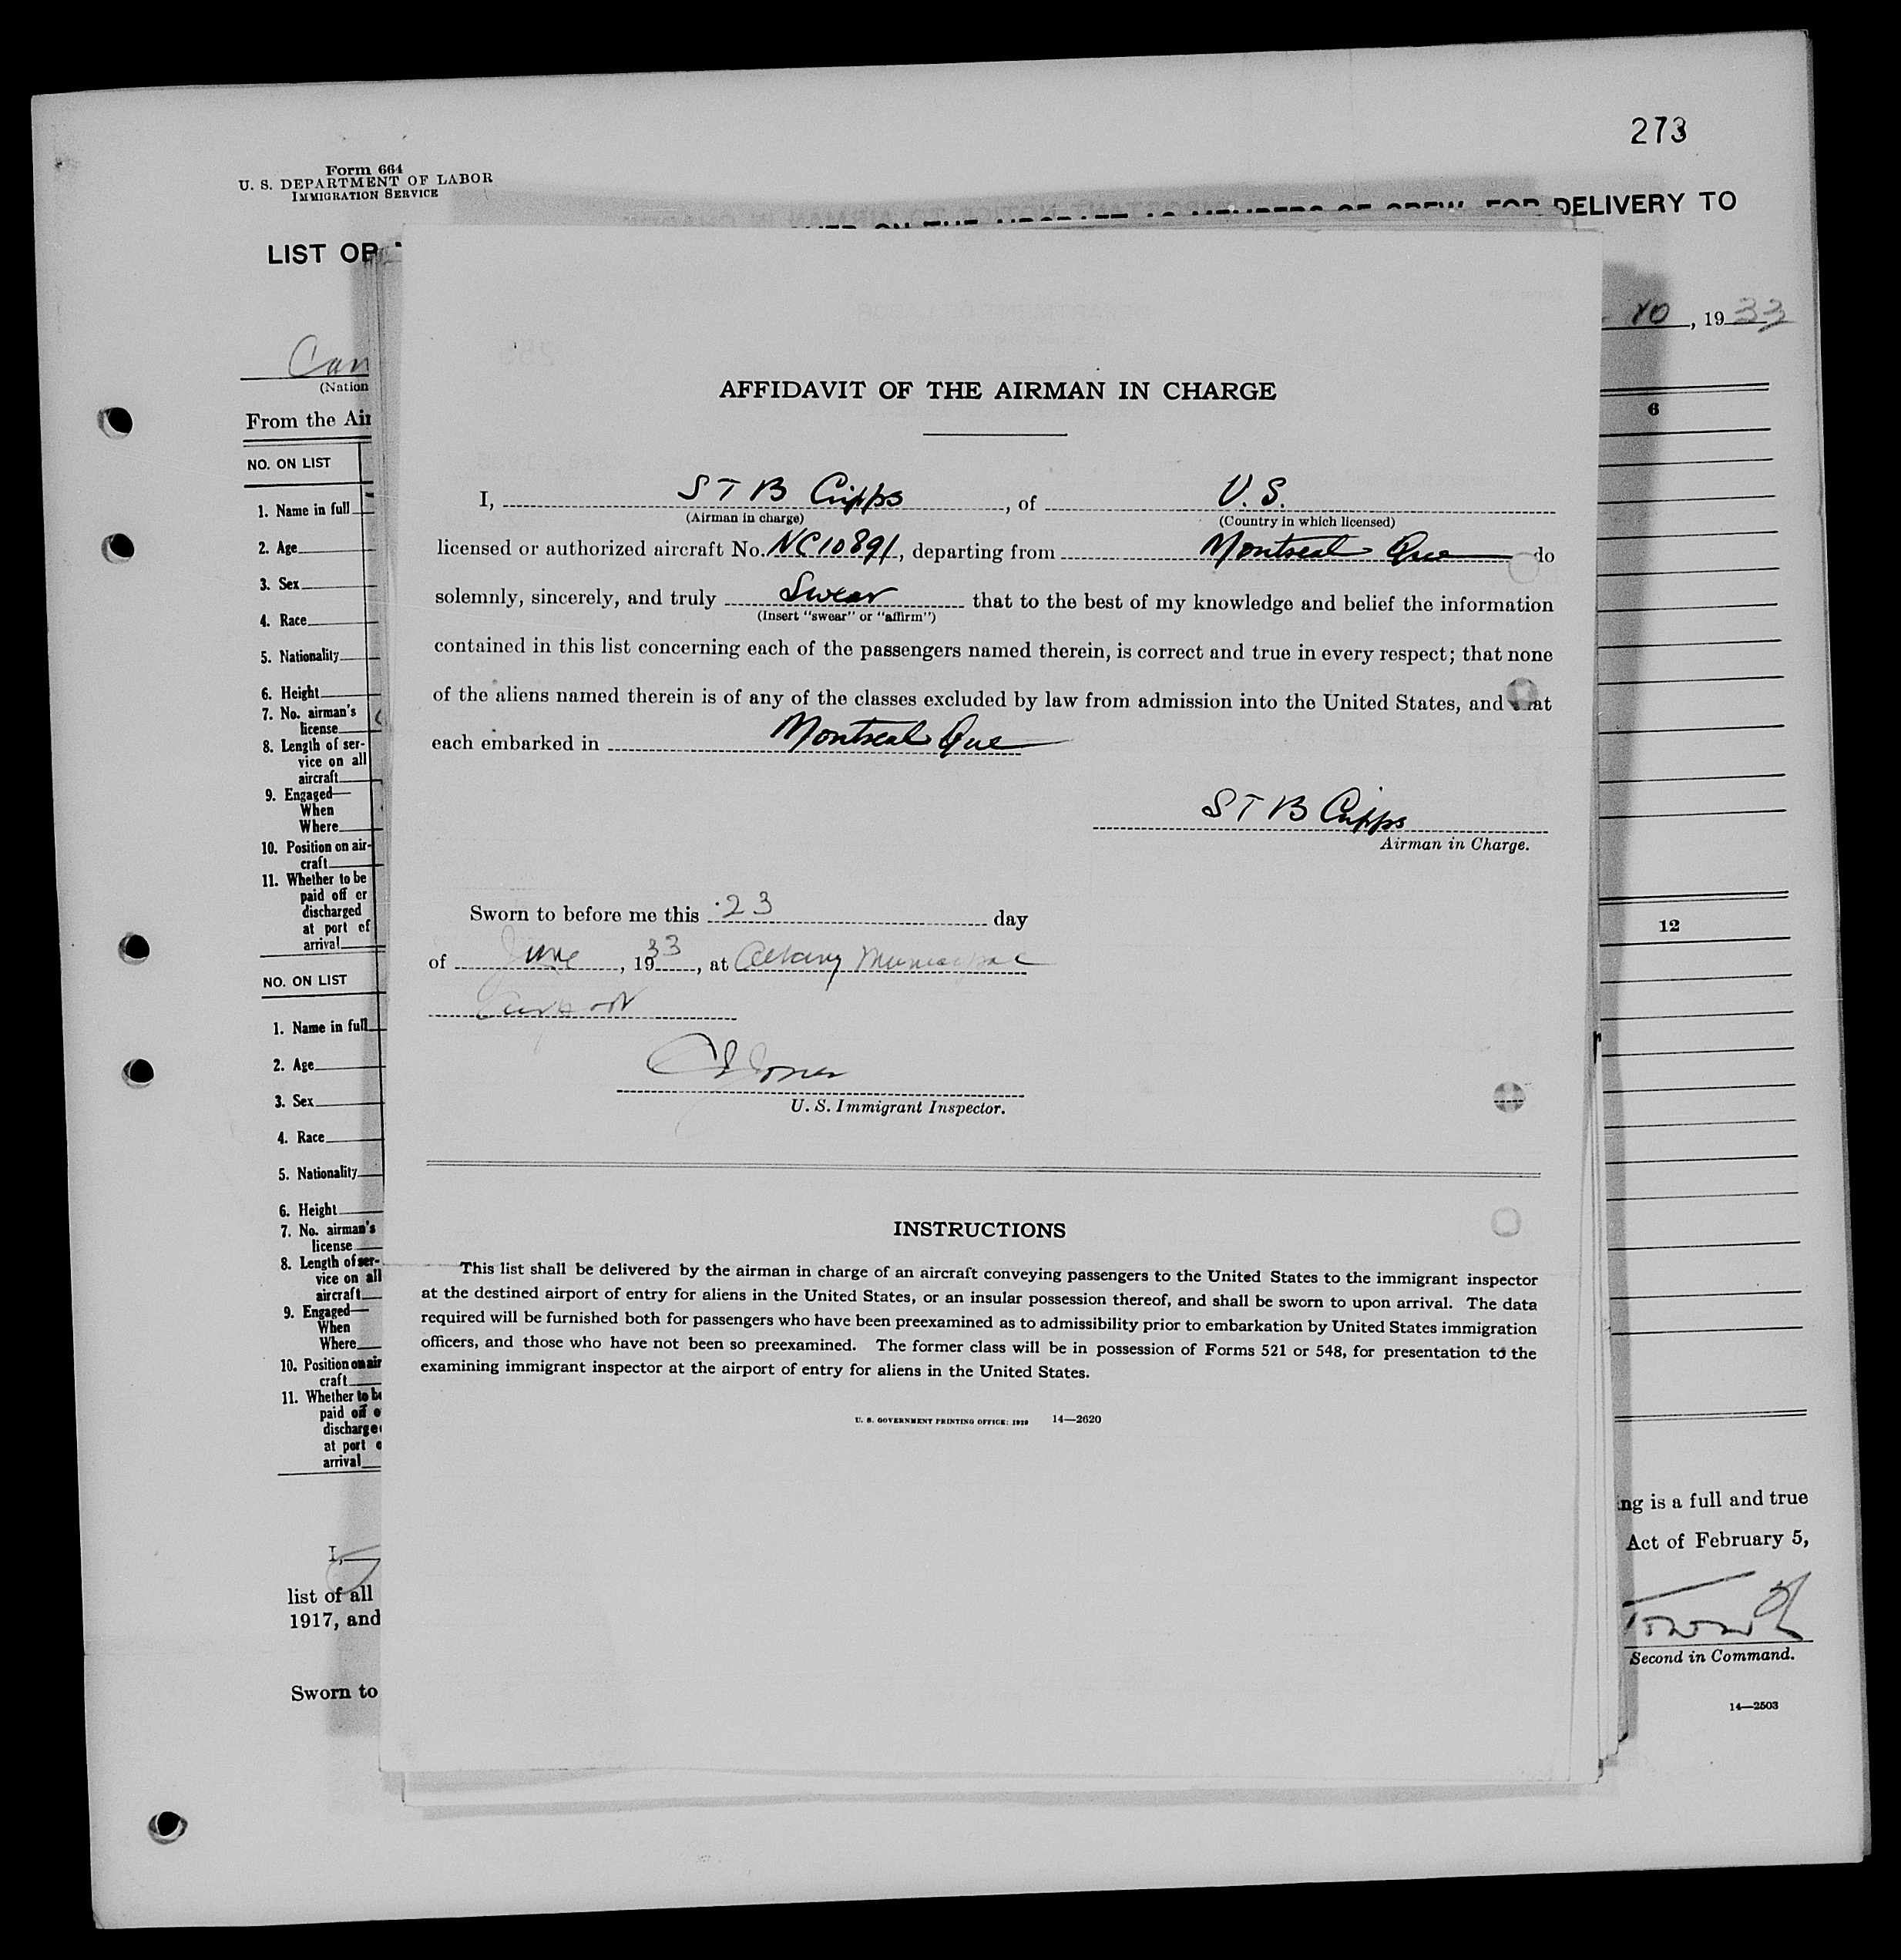 273
Form 664
U. S. DEPARTMENT OF LABOR
IMMIGRATION SERVICE
DELIVERY TO
LIST OF
10, 1933
Can
(Nation
From the Air
6
NO. ON LIST
1. Name in full
2. Age
3. Sex
4. Race
5. Nationality
6. Height
7. No. airman's
license
8. Length of ser-
vice on all
aircraft
9. Engaged—
When
Where
10. Position on air-
craft
11. Whether to be
paid off or
discharged
at port of
arrival
12
NO. ON LIST
1. Name in full
2. Age
3. Sex
4. Race
5. Nationality
6. Height
7. No. airman's
license
8. Length of ser-
vice on all
aircraft
9. Engaged—
When
Where
10. Position on air
craft
11. Whether to be
paid off o
discharge
at port o
arrival
I,
list of all
1917, and
Sworn to
AFFIDAVIT OF THE AIRMAN IN CHARGE
I, S T B Cripps, of U. S.
(Airman in charge) (Country in which licensed)
licensed or authorized aircraft No. NC10891, departing from Montreal Que do
solemnly, sincerely, and truly Swear that to the best of my knowledge and belief the information
(Insert "swear" or "affirm")
contained in this list concerning each of the passengers named therein, is correct and true in every respect; that none
of the aliens named therein is of any of the classes excluded by law from admission into the United States, and that
each embarked in Montreal Que
S T B Cripps
Airman in Charge.
Sworn to before me this 23 day
of June, 1933, at Albany Municipal
Airport
U. S. Immigrant Inspector.
INSTRUCTIONS
This list shall be delivered by the airman in charge of an aircraft conveying passengers to the United States to the immigrant inspector
at the destined airport of entry for aliens in the United States, or an insular possession thereof, and shall be sworn to upon arrival. The data
required will be furnished both for passengers who have been preexamined as to admissibility prior to embarkation by United States immigration
officers, and those who have not been so preexamined. The former class will be in possession of Forms 521 or 548, for presentation to the
examining immigrant inspector at the airport of entry for aliens in the United States.
U. S. GOVERNMENT PRINTING OFFICE: 1929 14—2620
ng is a full and true
Act of February 5,
Second in Command.
14—2503